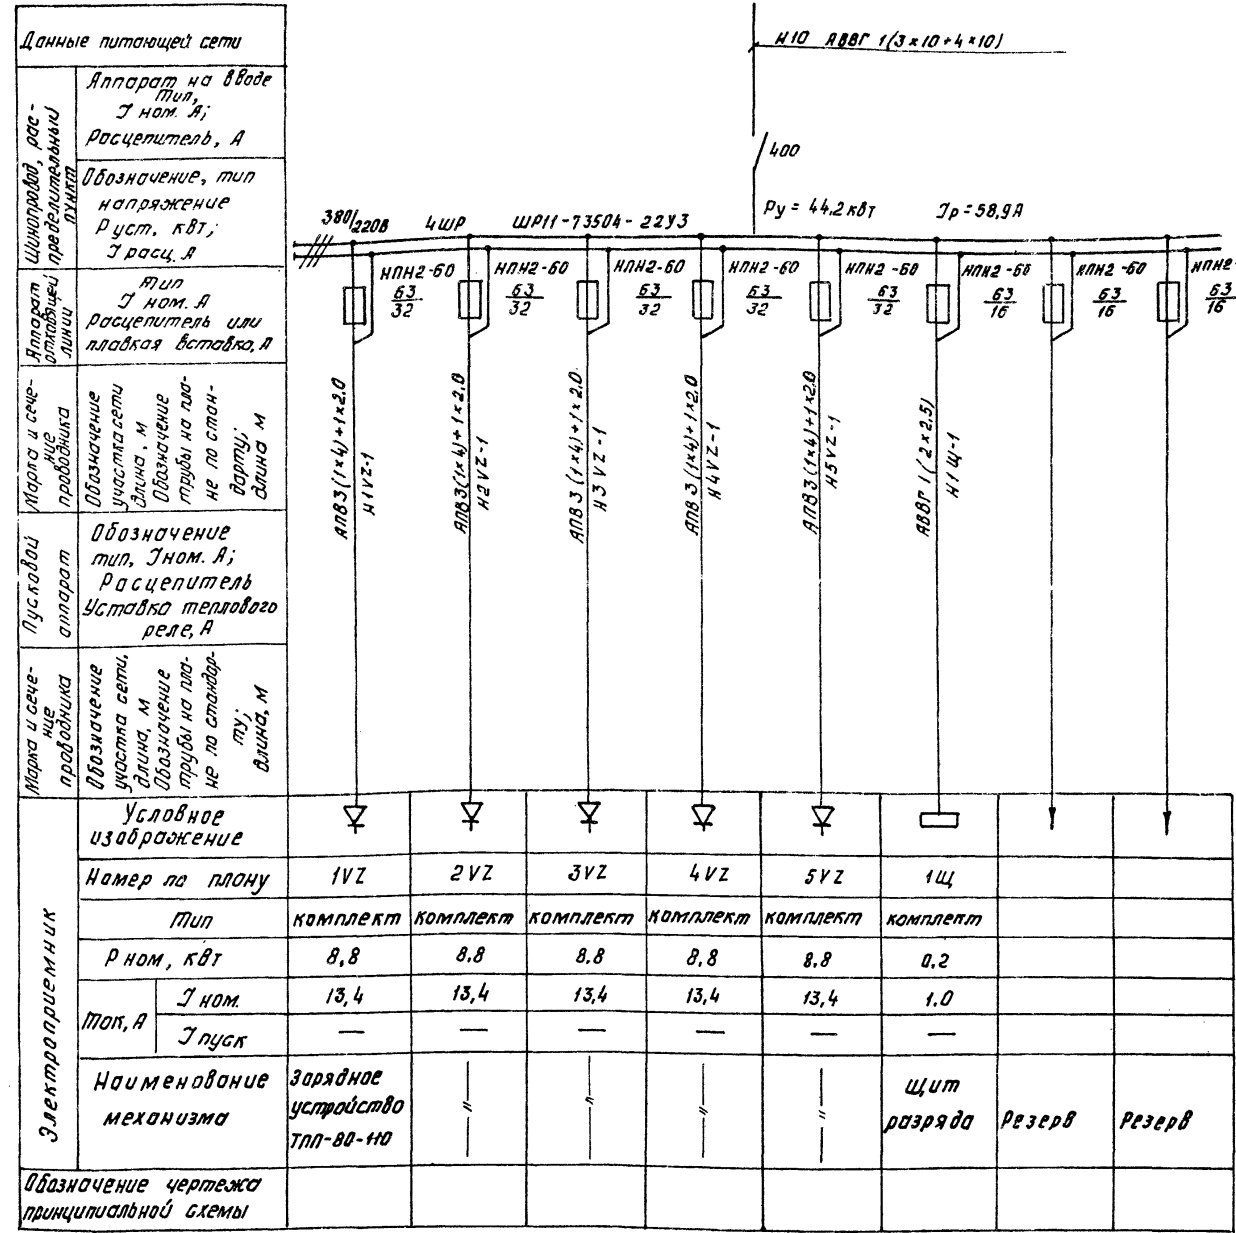 Данные питающей сети
Н10 АВВГ 1(3×10+4×10)
Шинопровод, рас-
пределительный
пункт
Аппарат на вводе
Тип,
I ном. А;
Расцепитель, А
400
Обозначение, тип
напряжение
Р уст, кВт;
I расц. А
380/220В
4ШР
ШР11-73504-22У3
Ру = 44,2 кВт
Iр=58,9А
Аппарат
отходящей
линии
Тип
I ном. А
Расцепитель или
плавкая вставка, А
НПН2-60
63
32
НПН2-60
63
32
НПН2-60
63
32
НПН2-60
63
32
НПН2-60
63
32
НПН2-60
63
16
НПН2-60
63
16
НПН2-
63
16
Марка и сече-
ние
проводника
Обозначение
участка сети
длина, м
Обозначение
трубы на пла-
не по стан-
дарту;
длина м
АПВ3(1×4)+1×2,0
Н1VZ-1
АПВ3(1×4)+1×2,0
Н2VZ-1
АПВ3(1×4)+1×2,0
Н3VZ-1
АПВ3(1×4)+1×2,0
Н4VZ-1
АПВ3(1×4)+1×2,0
Н5VZ-1
АВВГ 1(2×2,5)
Н1Щ-1
Пусковой
аппарат
Обозначение
тип, Iном. А;
Расцепитель
Уставка теплового
реле, А
Марка и сече-
ние
проводника
Обозначение
участка сети,
длина, м
Обозначение
трубы на пла-
не по стандар-
ту;
длина, м
Электроприемник
Условное
изображение
Номер по плану
1VZ 2VZ 3VZ 4VZ 5VZ 1Щ
Тип
комплект комплект комплект комплект комплект комплект
Р ном, кВт
8,8 8.8 8.8 8,8 8,8 0,2
Ток, А
I ном.
13,4 13,4 13,4 13,4 13,4 1.0
I пуск
— — — — — —
Наименование
механизма
Зарядное
устройство
ТПП-80-110
—〃— —〃— —〃— —〃—
Щит
разряда
Резерв
Резерв
Обозначение чертежа
принципиальной схемы